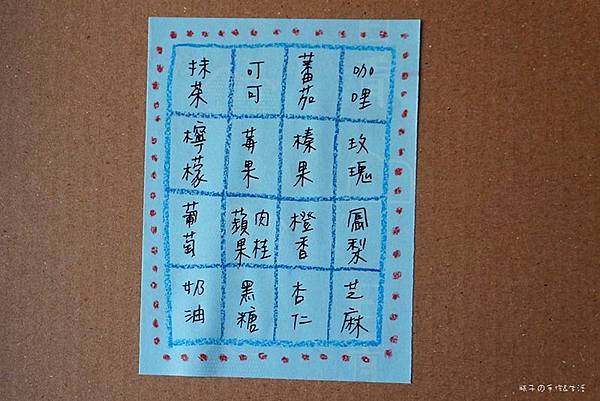 抹茶
可可
蕃茄
咖哩
檸檬
莓果
榛果
玫瑰
葡萄
肉桂
蘋果
橙香
鳳梨
奶油
黑糖
杏仁
芝麻
子の手作&生活